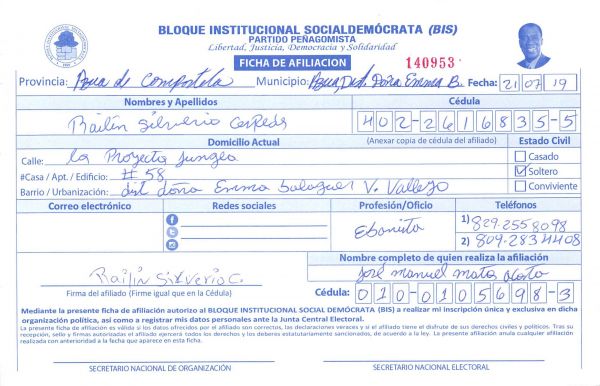 BLOQUE INSTITUCIONAL SOCIALDEMÓCRATA (BIS)
PARTIDO PEÑAGOMISTA
Libertad, Justicia, Democracia y Solidaridad
FICHA DE AFILIACION 140953
Provincia: Azua de Compostela Municipio: Azua, Dist. Doña Emma B. Fecha: 21 07 19
Nombres y Apellidos Cédula
Railin Silverio Cespeds 402-2616835-5
Domicilio Actual (Anexar copia de cédula del afiliado) Estado Civil
Calle: La Proyecto Jungla Casado
#Casa / Apt. / Edificio: # 58 Soltero
Barrio / Urbanización: dist doña Emma balaguer V. Vallejo Conviviente
Correo electrónico Redes sociales Profesión/Oficio Teléfonos
Ebanista 1) 829.255 8098
2) 809-283 4408
Nombre completo de quien realiza la afiliación
Railin Silverio C. José manuel mata Acosta
Firma del afiliado (Firme igual que en la Cédula) Cédula: 010-0105698-3
Mediante la presente ficha de afiliación autorizo al BLOQUE INSTITUCIONAL SOCIAL DEMÓCRATA (BIS) a realizar mi inscripción única y exclusiva en dicha
organización política, así como a registrar mis datos personales ante la Junta Central Electoral.
La presente ficha de afiliación es válida si los datos ofrecidos por el afiliado son correctos, las declaraciones veraces y si el afiliado tiene el disfrute de sus derechos civiles y políticos. Tras su
recepción, selle y firmas autorizadas el afiliado ejercerá todos los derechos y los deberes estatutariamente sancionados, de acuerdo a la ley. La presente afiliación anula cualquier afiliación
realizada con anterioridad a la fecha que aparece en esta ficha.
SECRETARIO NACIONAL DE ORGANIZACIÓN SECRETARIO NACIONAL ELECTORAL